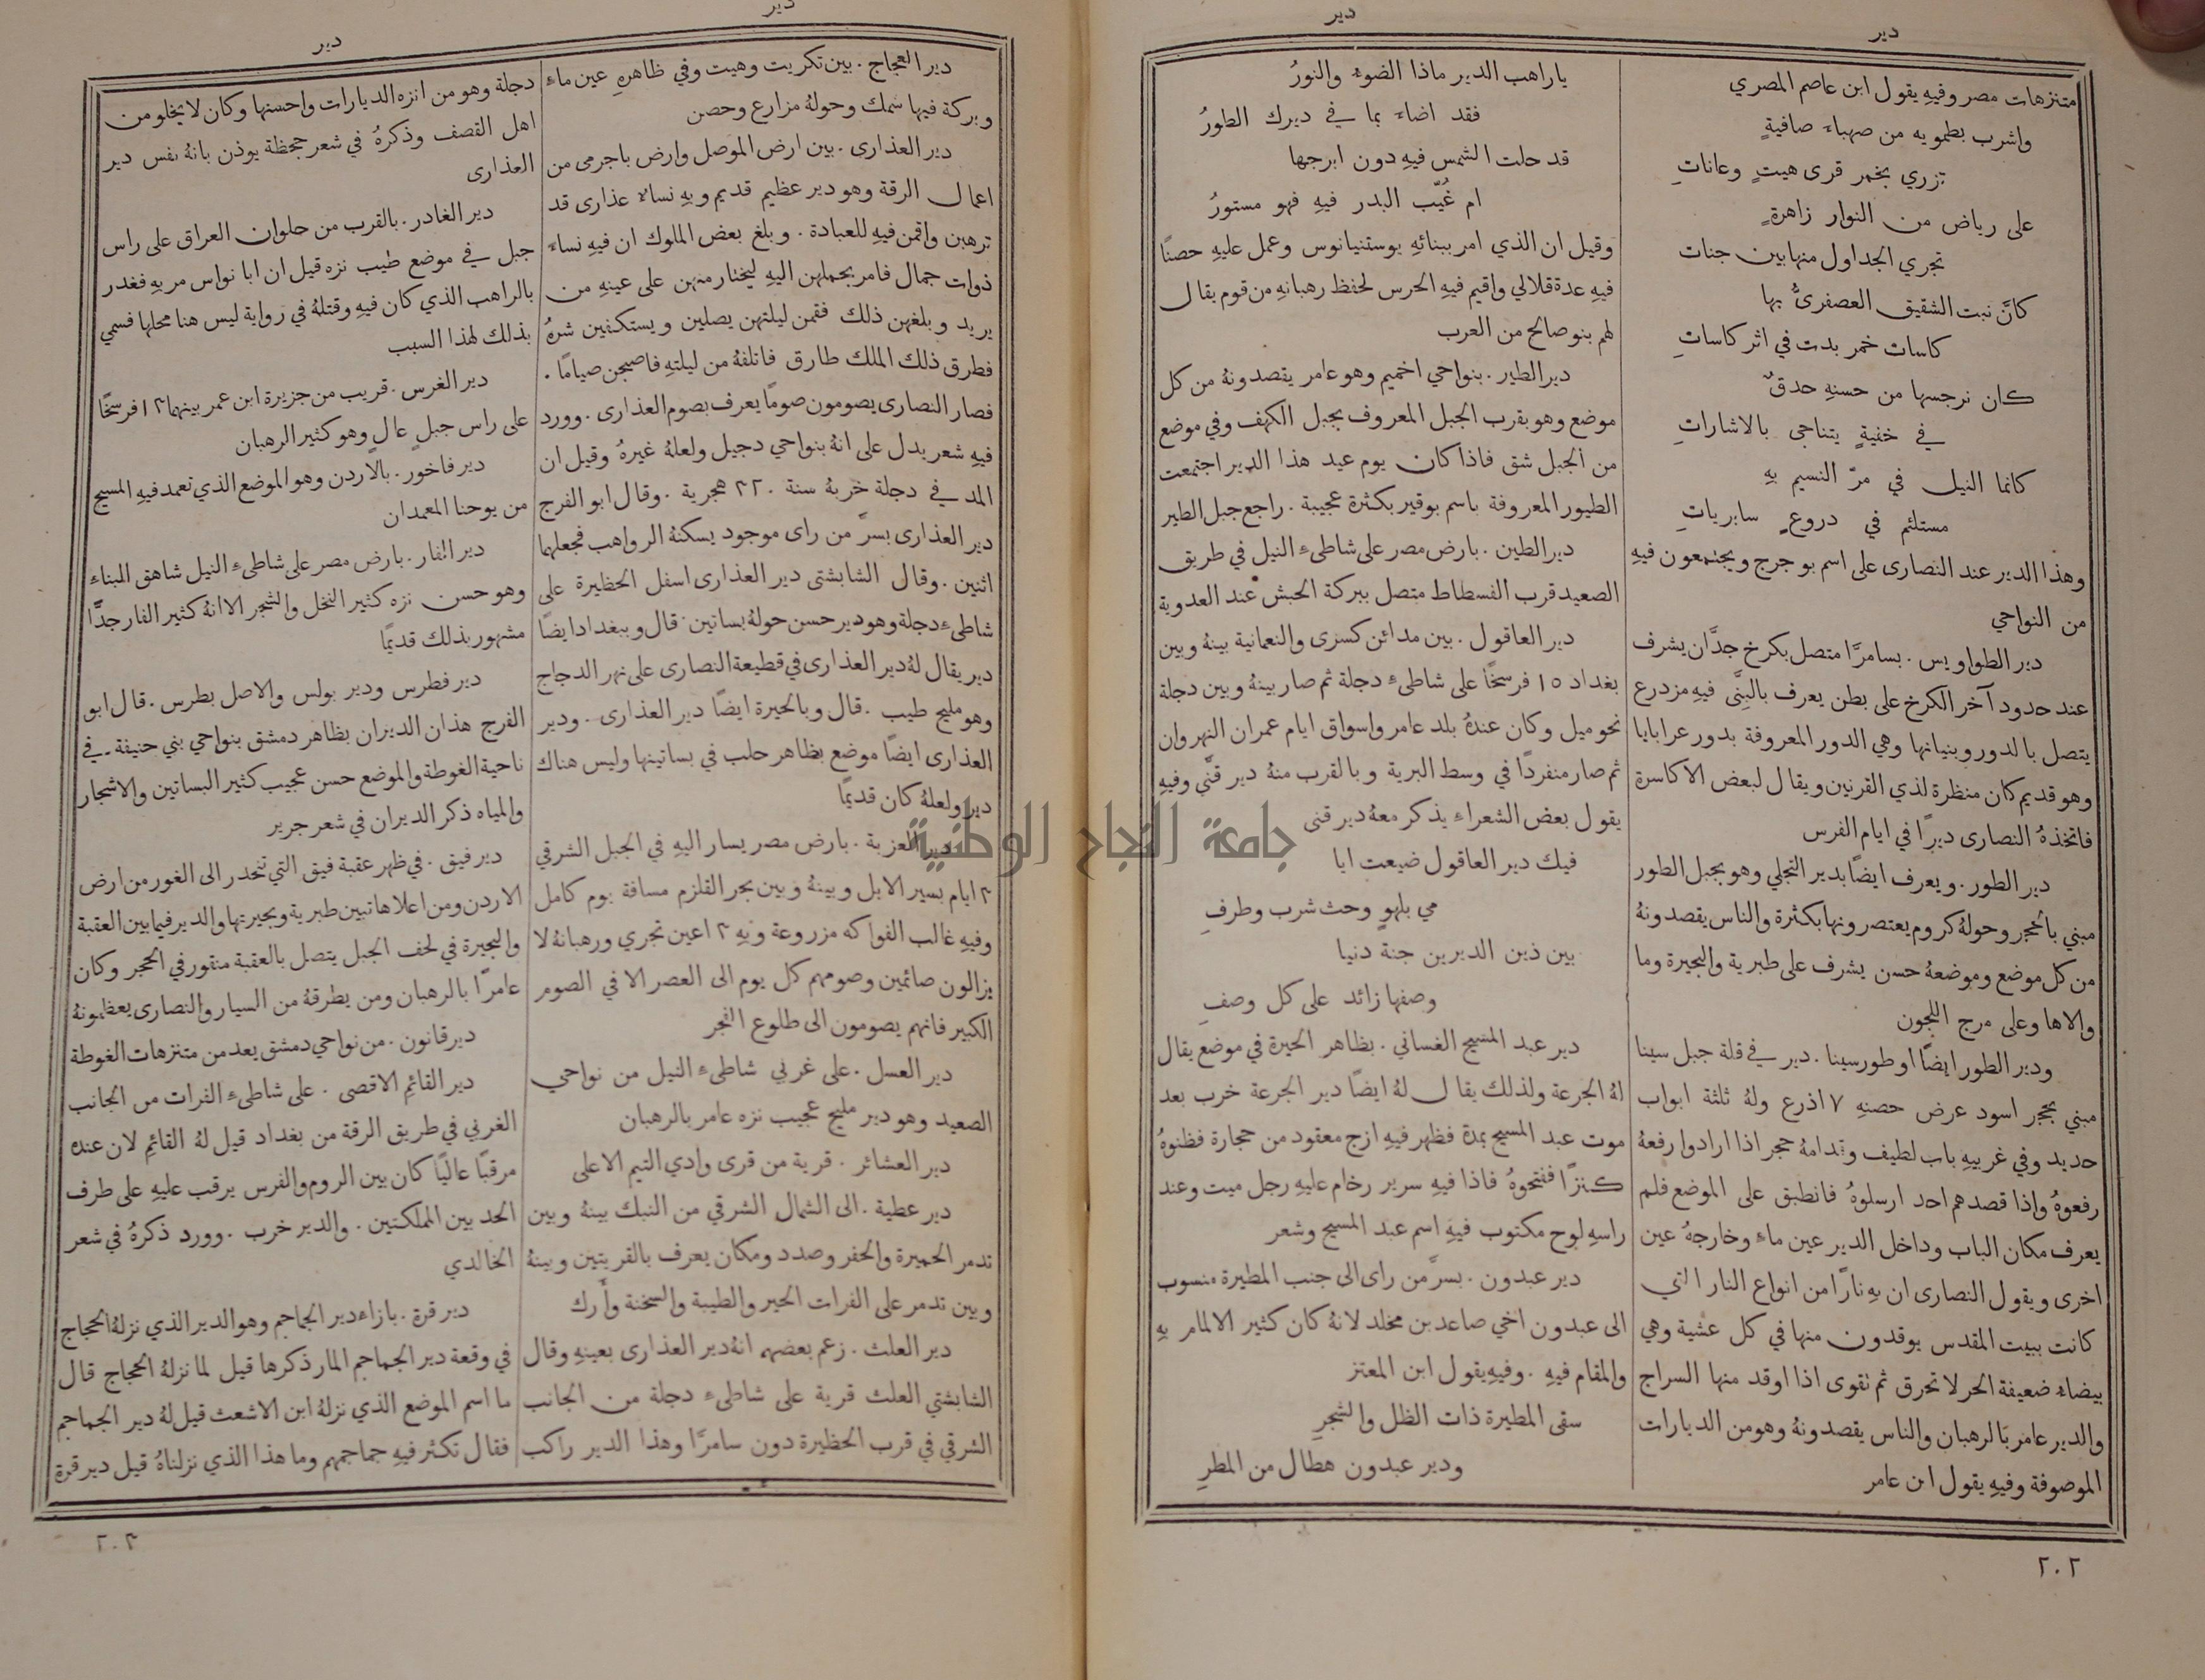 دير
دير
متنزهات مصر وفيهِ يقول ابن عاصم المصري
واشرب بطمويه من صهباء صافيةٍ
تزري بخمر قرى هيتٍ وعاناتِ
على رياض من النوار زاهرةٍ
تجري الجداول منها بين جنات
كأنَّ نبت الشقيق العصفريُّ بها
كاسات خمر بدت في اثر كاساتِ
كان نرجسها من حسنهِ حدقٌ
في خفيةٍ يتناجى بالاشاراتِ
كانما النيل في مرّ النسيم بهِ
مستلئم في دروعٍ سابرياتِ
وهذا الدير عند النصارى على اسم بو جرج ويجتمعون فيهِ
من النواحي
دير الطواويس . بسامرَّا متصل بكرخ جدَّان يشرف
عند حدود آخر الكرخ على بطن يعرف بالبنَّى فيهِ مزدرع
يتصل بالدور وبنيانها وهي الدور المعروفة بدور عرابايا
وهو قديم كان منظرة لذي القرنين ويقال لبعض الاكاسرة
فاتخذهُ النصارى ديرًا في ايام الفرس
دير الطور . ويعرف ايضًا بدير التجلي وهو بجبل الطور
مبني بالحجر وحولهُ كروم يعتصرونها بكثرة والناس يقصدونهُ
من كل موضع وموضعهُ حسن يشرف على طبرية والبحيرة وما
والاها وعلى مرج اللجون
ودير الطور ايضًا او طور سينا . دير في قلة جبل سينا
مبني بحجر اسود عرض حصنهِ ٧ اذرع ولهُ ثلثة ابواب
حديد وفي غربيهِ باب لطيف وقدامهُ حجر اذا ارادوا رفعهُ
رفعوهُ واذا قصدهم احد ارسلوهُ فانطبق على الموضع فلم
يعرف مكان الباب وداخل الدير عين ماء وخارجهُ عين
اخرى ويقول النصارى ان بهِ نارًا من انواع النار التي
كانت ببيت المقدس يوقدون منها في كل عشية وهي
بيضاء ضعيفة الحر لا تحرق ثم تقوى اذا اوقد منها السراج
والدير عامر بالرهبان والناس يقصدونهُ وهو من الديارات
الموصوفة وفيهِ يقول ابن عامر
يا راهب الدير ماذا الضوء والنورُ
فقد اضاء بما في ديرك الطورُ
قد حلت الشمس فيهِ دون ابرجها
ام غُيّب البدر فيهِ فهو مستورُ
وقيل ان الذي امر ببنائهِ يوستنيانوس وعمل عليهِ حصنًا
فيهِ عدة قلالي واقيم فيهِ الحرس لحفظ رهبانهِ من قوم يقال
لهم بنو صالح من العرب
دير الطير . بنواحي اخميم وهو عامر يقصدونهُ من كل
موضع وهو بقرب الجبل المعروف بجبل الكهف وفي موضع
من الجبل شق فاذا كان يوم عيد هذا الدير اجتمعت
الطيور المعروفة باسم بوقير بكثرة عجيبة . راجع جبل الطير
دير الطين . بارض مصر على شاطىء النيل في طريق
الصعيد قرب الفسطاط متصل ببركة الحبش عند العدوية
دير العاقول . بين مدائن كسرى والنعمانية بينهُ وبين
بغداد ١٥ فرسخًا على شاطىء دجلة ثم صار بينهُ وبين دجلة
نحو ميل وكان عندهُ بلد عامر واسواق ايام عمران النهروان
ثم صار منفردًا في وسط البرية وبالقرب منهُ دير قنَّى وفيهِ
يقول بعض الشعراء يذكر معهُ دير قنى
فيك دير العاقول ضيعت ايا
مي بلهوٍ وحث شرب وطرفِ
بين ذين الديرين جنة دنيا
وصفها زائد على كل وصفِ
دير عبد المسيح الغساني . بظاهر الحيرة في موضع يقال
لهُ الجرعة ولذلك يقال لهُ ايضًا دير الجرعة خرب بعد
موت عبد المسيح بمدة فظهر فيهِ ازج معقود من حجارة فظنوهُ
كنزًا ففتحوهُ فاذا فيهِ سرير رخام عليهِ رجل ميت وعند
راسهِ لوح مكتوب فيهِ اسم عبد المسيح وشعر
دير عبدون . بسرَّ من راى الى جنب المطيرة منسوب
الى عبدون اخي صاعد بن مخلد لانهُ كان كثير الالمام بهِ
والمقام فيهِ . وفيهِ يقول ابن المعتز
سقى المطيرة ذات الظل والشجرِ
ودير عبدون هطال من المطرِ
٢٠٢
دير
دير
دير العجاج . بين تكريت وهيت وفي ظاهرهِ عين ماء
وبركة فيها سمك وحولهُ مزارع وحصن
دير العذارى . بين ارض الموصل وارض باجرمى من
اعمال الرقة وهو دير عظيم قديم وبهِ نساء عذارى قد
ترهبن واقمن فيهِ للعبادة . وبلغ بعض الملوك ان فيهِ نساء
ذوات جمال فامر بحملهن اليهِ ليختار منهن على عينهِ من
يريد وبلغهن ذلك فقمن ليلتهن يصلين ويستكفين شرهُ
فطرق ذلك الملك طارق فاتلفهُ من ليلتهِ فاصبحن صيامًا .
فصار النصارى يصومون صومًا يعرف بصوم العذارى . وورد
فيهِ شعر يدل على انهُ بنواحي دجيل ولعلهُ غيرهُ وقيل ان
المد في دجلة خربهُ سنة ٣٢٠ هجرية . وقال ابو الفرج
دير العذارى بسرَّ من راى موجود يسكنهُ الرواهب فجعلهما
اثنين . وقال الشابشتي دير العذارى اسفل الحظيرة على
شاطىء دجلة وهو دير حسن حولهُ بساتين . قال وببغداد ايضًا
دير يقال لهُ دير العذارى في قطيعة النصارى على نهر الدجاج
وهو مليح طيب . قال وبالحيرة ايضًا دير العذارى . ودير
العذارى ايضًا موضع بظاهر حلب في بساتينها وليس هناك
دير ولعلهُ كان قديمًا
دير العزبة . بارض مصر يسار اليهِ في الجبل الشرقي
٣ ايام بسير الابل وبينهُ وبين بحر القلزم مسافة يوم كامل
وفيهِ غالب الفواكه مزروعة وبهِ ٣ اعين تجري ورهبانهُ لا
يزالون صائمين وصومهم كل يوم الى العصر الا في الصوم
الكبير فانهم يصومون الى طلوع الفجر
دير العسل . على غربي شاطىء النيل من نواحي
الصعيد وهو دير مليح عجيب نزه عامر بالرهبان
دير العشائر . قرية من قرى وادي التيم الاعلى
دير عطية . الى الشمال الشرقي من النبك بينهُ وبين
تدمر الحميرة والحفر وصدد ومكان يعرف بالقريتين وبينهُ
وبين تدمر على الفرات الحير والطيبة والسخنة وأرك
دير العلث . زعم بعضهم انهُ دير العذارى بعينهِ وقال
الشابشتي العلث قرية على شاطىء دجلة من الجانب
الشرقي في قرب الحظيرة دون سامرَّا وهذا الدير راكب
دجلة وهو من انزه الديارات واحسنها وكان لا يخلو من
اهل القصف وذكرهُ في شعر جحظة يوذن بانهُ نفس دير
العذارى
دير الغادر . بالقرب من حلوان العراق على راس
جبل في موضع طيب نزه قيل ان ابا نواس مر بهِ فغدر
بالراهب الذي كان فيهِ وقتلهُ في رواية ليس هنا محلها فسمي
بذلك لهذا السبب
دير الغرس . قريب من جزيرة ابن عمر بينهما ١٣ فرسخًا
على راس جبلٍ عالٍ وهو كثير الرهبان
دير فاخور . بالاردن وهو الموضع الذي تعمد فيهِ المسيح
من يوحنا المعمدان
دير الفار . بارض مصر على شاطىء النيل شاهق البناء
وهو حسن نزه كثير النخل والشجر الا انهُ كثير الفار جدًّا
مشهور بذلك قديمًا
دير فطرس ودير بولس والاصل بطرس . قال ابو
الفرج هذان الديران بظاهر دمشق بنواحي بني حنيفة . في
ناحية الغوطة والموضع حسن عجيب كثير البساتين والاشجار
والمياه ذكر الديران في شعر جرير
دير فيق . في ظهر عقبة فيق التي تنحدر الى الغور من ارض
الاردن ومن اعلاها تبين طبرية وبحيرتها والدير فيما بين العقبة
والبحيرة في لحف الجبل يتصل بالعقبة منقور في الحجر وكان
عامرًا بالرهبان ومن يطرقهُ من السيار والنصارى يعظمونهُ
دير قانون . من نواحي دمشق يعد من متنزهات الغوطة
دير القائم الاقصى . على شاطىء الفرات من الجانب
الغربي في طريق الرقة من بغداد قيل لهُ القائم لان عنده
مرقبًا عاليًا كان بين الروم والفرس يرقب عليهِ على طرف
الحد بين المملكتين . والدير خرب . وورد ذكرهُ في شعر
الخالدي
دير قرة . بازاء دير الجماجم وهو الدير الذي نزلهُ الحجاج
في وقعة دير الجماجم المار ذكرها قيل لما نزلهُ الحجاج قال
ما اسم الموضع الذي نزلهُ ابن الاشعث قيل لهُ دير الجماجم
فقال تكثر فيهِ جماجمهم وما هذا الذي نزلناهُ قيل دير قرة
٢٠٣
جامعة النجاح الوطنية